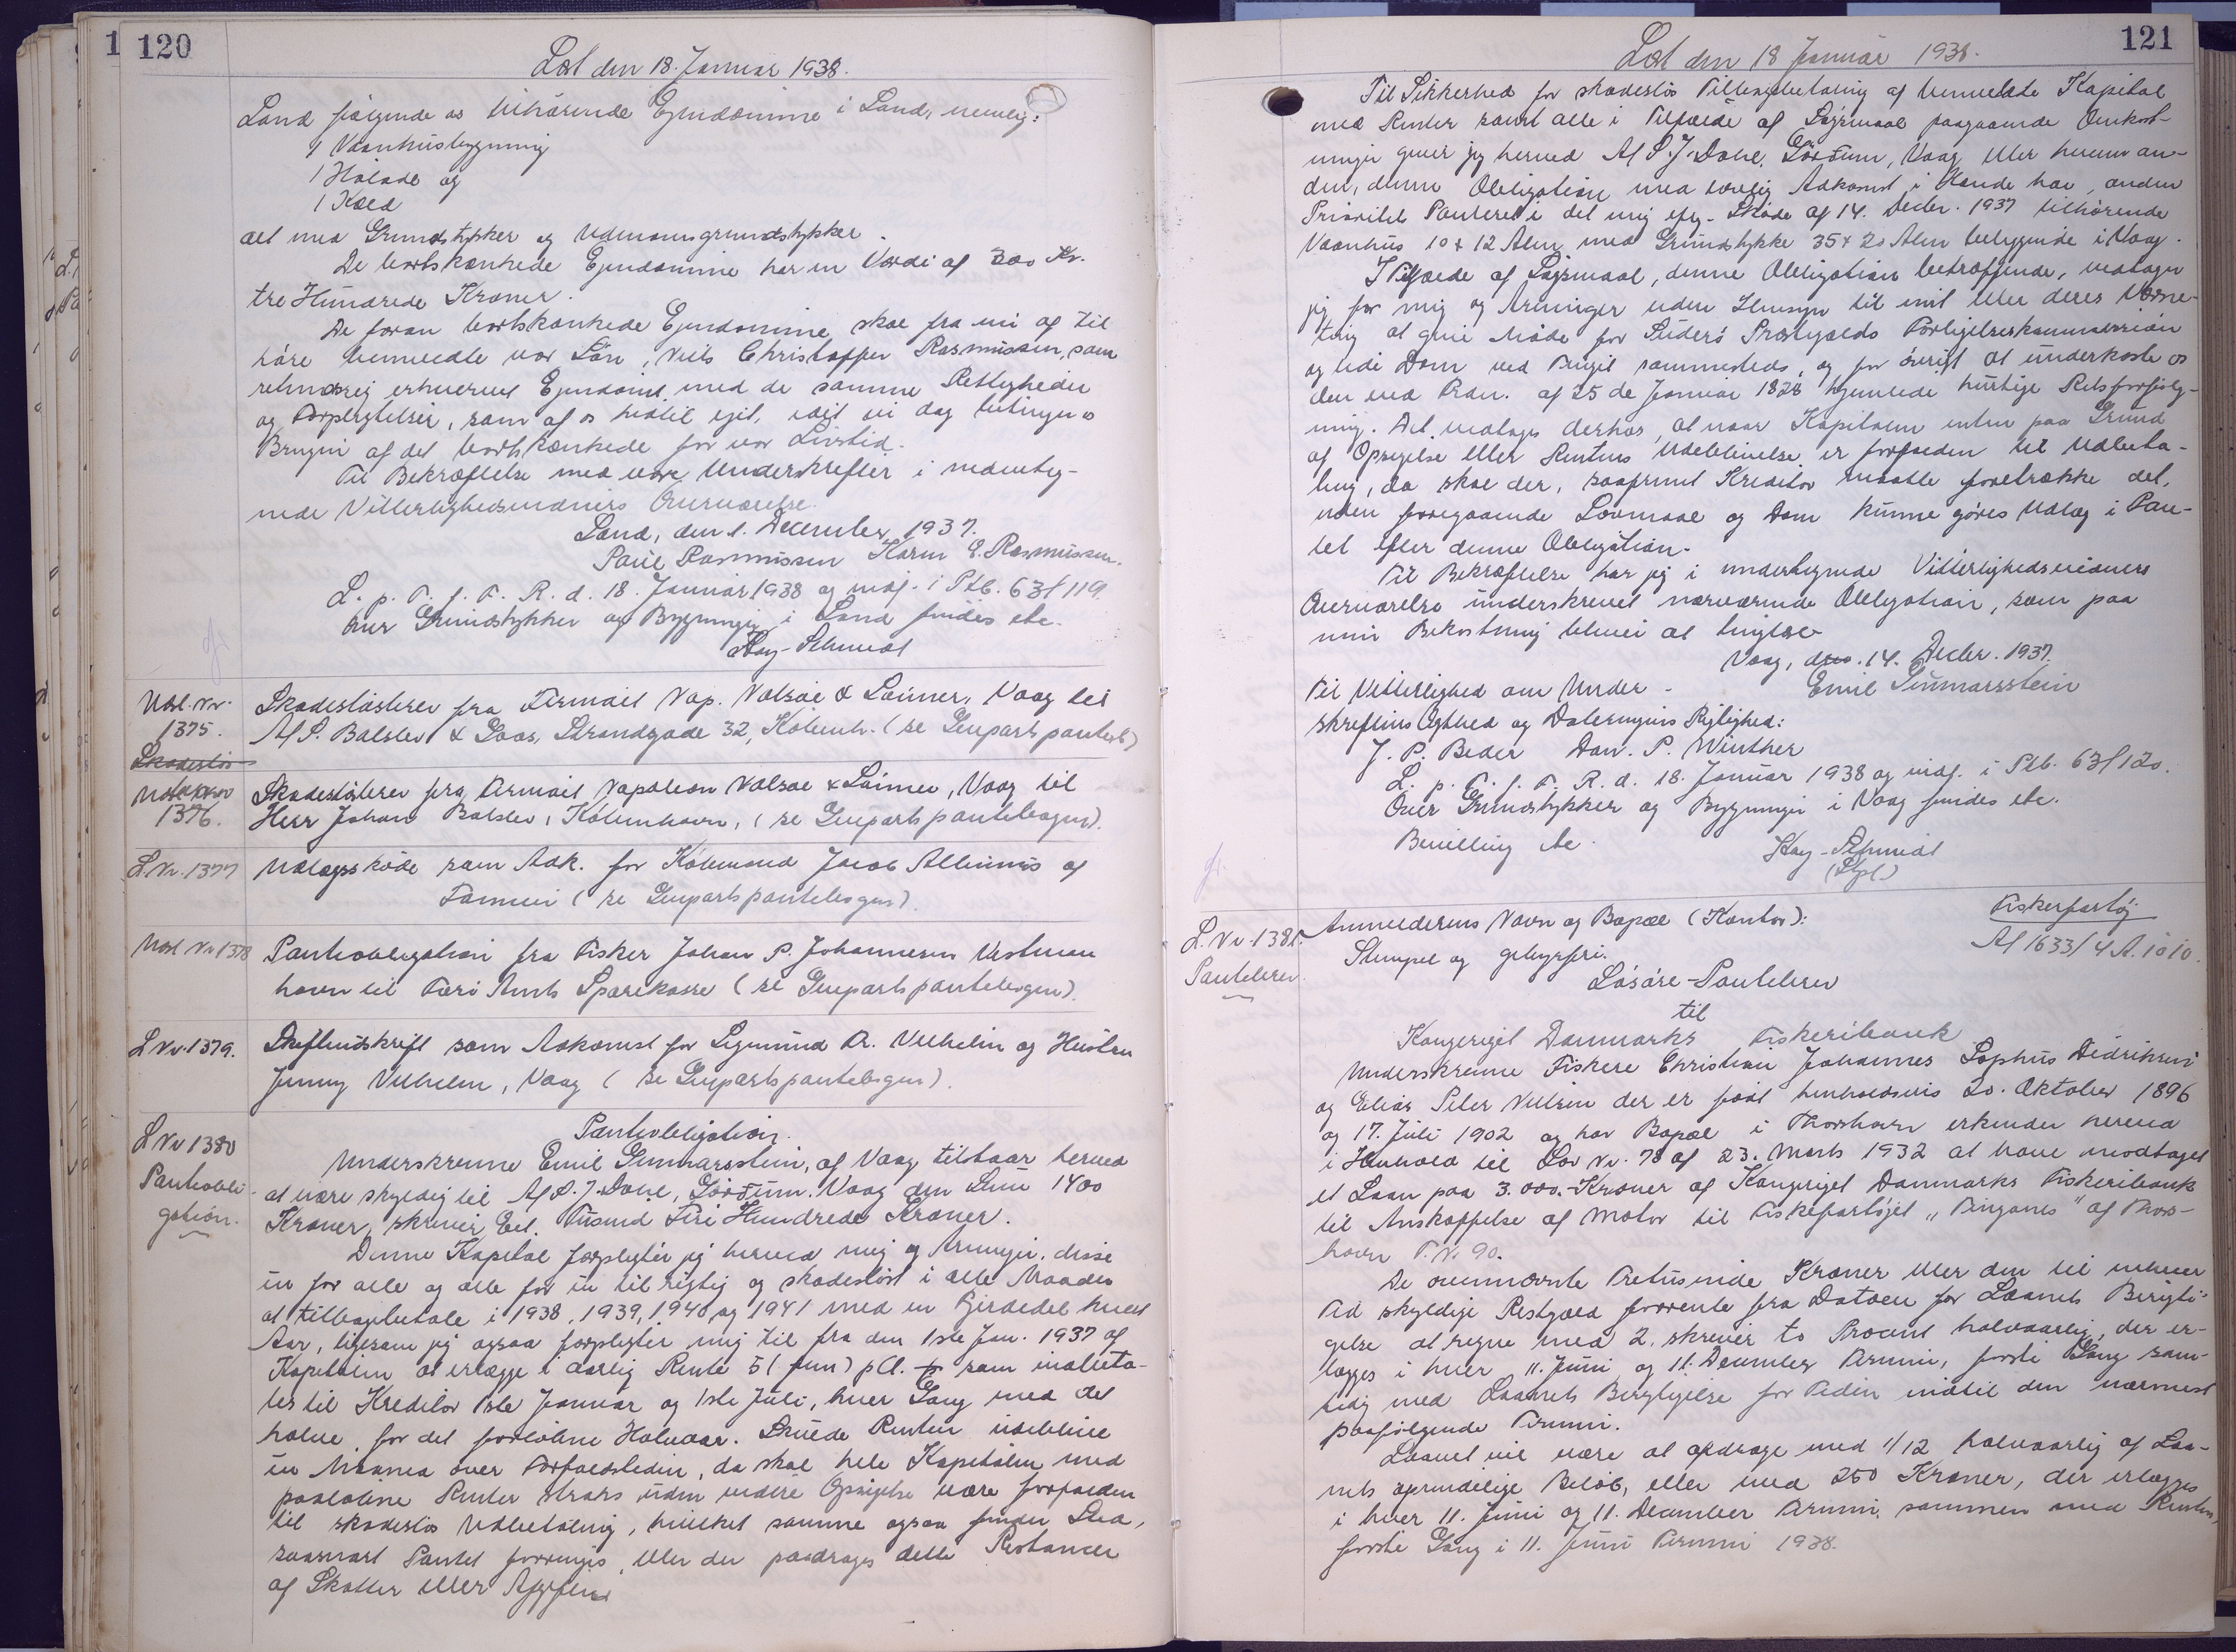 120
Læst den 18. Januar 1938.
Sand følgende os tilhørende Ejendomme i Sand, nemlig:
1 Vaanhusbygning
1 Hølade og
1 Kæld
alt med Grundstykker og Udenomsgrundstykker.
De bortskænkede Ejendomme har en Værdi af 300 Kr.
tre Hundrede Kroner.
De foran bortskænkede Ejendomme skal fra nu af til
høre bemeldte vor Søn, Niels Christoffer Rasmussen, som
retmæssig erhvervet Ejendomt med de samme Rettigheder
og Forpligtelser, som af os hidtil ejet, idet vi dog betinger os
Brugen af det bortskænkede for vor Livstid.
Til Bekræftelse med vore Underskrifter i medunteg-
nede Vitterlighedsvidners Overværelse.
Sand, den 1. December 1937.
Poul Rasmussen Karen E. Rasmussen.
L. p. T. f. F. R. d. 18. Januar 1938 og indf. i Ptb. 63f 119.
Over Grundstykker og Bygninger i Sand findes etc.
Kay-Schmidt
Udsl. Nr. 1375.
Skadesløs
Skadesløsbrev fra Firmaet Nap. Valsøe & Sønner, Vaag til
A/S. Balslev & Goos, Strandgade 32, Københ. (se Genpartspanteb)
1376.
Skadesløsbrev fra Firmaet Napoleon Valsøe & Sønner, Vaag til
Herr Johan Balslev, København, (se Genpartspantebogen).
L. Nr. 1377
Udlægsskøde som Adk. for Købmand Jacob Albinus af
Famien (se Genpartspantebogen).
Udsl Nr 1378
Pantobligation fra Fisker Johan P. Johannesen Vestman
havn til Færø Amts Sparekasse (se Genpartspantebogen).
L Nr. 1379.
Skifteudskrift som Adkomst for Sigmund A. Vilhelm og Hustru
Jenny Vilhelm, Vaag (se Genpartspantebogen).
L Nr 1380
Pantobli-
gation.
Pantobligation.
Underskrevne Emil Gunnarsstein, af Vaag, tilstaar herved
at være skyldig til A/S. J. Dahl, Gørðum. Vaag den Sum 1400
Kroner, skriver Eet Tusend Firi Hundrede Kroner.
Denne Kapital forpligter jeg herved mig og Arvinger, disse
en for alle og alle for en til rigtig og skadesløst i alle Maader
at tilbagebetale i 1938, 1939, 1940 og 1941 med en Fjerdedel hvert
Aar, ligesom jeg ogsaa forpligter mig til fra den 1ste Jan. 1937 af
Kapitalen at erlægge i aarlig Rente 5 (fem) pCt. som indbeta-
les til Kreditor 1ste Januar og 1ste Juli, hver Gang med det
halve, for det forløbne Halvaar. Skulde Renten udeblive
en Maaned over Forfaldstiden, da skal hele Kapitalen med
paaløbne Renter straks uden videre Opsigelse være forfalden
til skadesløs Udbetaling, hvilket samme ogsaa finder Sted,
saasnart Pantet forringes, eller der paadrages dette Restancer
af Skatter eller Afgifter
121
Læst den 18 Januar 1938.
Til Sikkerhed for skadesløs Tilbagebetaling af bemeldte Kapital
med Renter samt alle i Tilfælde af Søgsmaal paagaaende Omkost-
ninger giver jeg herved A/S. J. Dahl, Gørðum, Vaag eller hvem an-
den, denne Obligation med lovlig Adkomst i Hænde har, anden
Prioritets Panteret i det mig iflg. Skøde af 14. Decbr. 1937 tilhørende
Vaanhus 10 x 12 Alen med Grundstykke 35 x 20 Alen beliggende i Vaag.
I Tilfælde af Søgsmaal, denne Obligation betræffende, vedtager
jeg for mig og Arvinger uden Hensyn til mit eller deres Værne-
ting at give Møde for Suderø Præstegælds Forligelseskommission
og lide Dom ved Tinget sammesteds, og for øvrigt at underkaste os
den ved Frdn. af 25 de Januar 1828 hjemlede hurtige Retsforfølg-
ning. Det vedtages derhos, at naar Kapitalen enten paa Grund
af Opsigelse eller Rentens Udeblivelse er forfalden til Udbeta-
ling, da skal der, saafremt Kreditor maatte foretrække det,
uden foregaaende Lovmaal og Dom kunne gøres Udlæg i Pan-
tet efter denne Obligation.
Til Bekræftelse har jeg i undertegnede Vitterlighedsvidners
Overværelse underskrevet nærværende Obligation, som paa
min Bekostning bliver at tinglæse
Vaag, den 14. Decbr. 1937.
Emil Gunnarsstein
Til Vitterlighed om Under-
skriftens Ægthed og Dateringens Rigtighed:
J. P. Beder Dan. P. Winther
L. p. T. f. F. R. d. 18. Januar 1938 og indf. i Ptb. 63f 120.
Over Grundstykker og Bygninger i Vaag findes etc.
Bevilling etc.
Kay-Schmidt
L. Nr. 1381.
Pantebrev.
Anmelderens Navn og Bopæl (Kontor):
Stempel og gebyrfri.
Fiskerfartøj
A/1633/4 A. 1010.
Løsøre-Pantebrev
til
Kongeriget Danmarks Fiskeribank
Underskrevne Fiskere Christian Johannes Sophus Didriksen
og Elias Peter Nielsen der er født henholdsvis 20. Oktober 1896
og 17. Juli 1902 og har Bopæl i Thorshavn erkender herved
i Henhold til Lov Nr. 78 af 23. Marts 1932 at have modtaget
et Laan paa 3.000.-Kroner af Kongeriget Danmarks Fiskeribank
til Anskaffelse af Motor til Fiskefartøjet „Tinganes" af Thors-
havn T. N. 90.
De ovennævnte Tretusinde Kroner eller den til enhver
Tid skyldige Restgæld forrente fra Datoen for Laanets Berigti-
gelse at regne med 2, skriver to Procent halvaarlig, der er-
lægges i hver 11. Juni og 11. December Termin, første Gang sam-
tidig med Laanets Berigtigelse for Tiden indtil den nærmest
paafølgende Termin.
Laanet vil være at afdrage med 1/12 halvaarlig af Laa-
nets oprindelige Beløb, eller med 250 Kroner, der erlægges
i hver 11. Juni og 11. December Termin, sammen med Renten,
første Gang i 11. Juni Termin 1938.